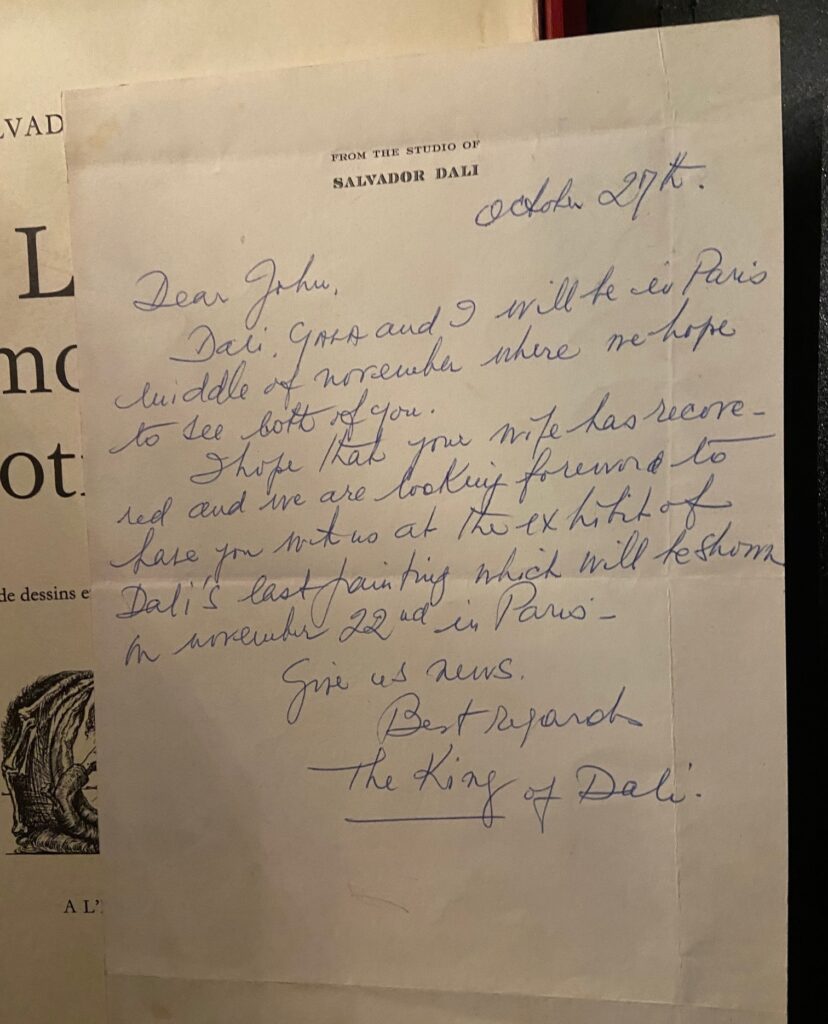 LVAD
L
mo
ot
de dessins e
A L'
FROM THE STUDIO OF
SALVADOR DALI
October 27th.
Dear John,
Dali, GALA and I will be in Paris
middle of november where we hope
to see both of you.
I hope that your wife has recove-
red and we are looking foreword to
have you with us at the exhibit of
Dali's last painting which will be shown
on november 22nd in Paris -
Give us news.
Best regards
The King of Dali.